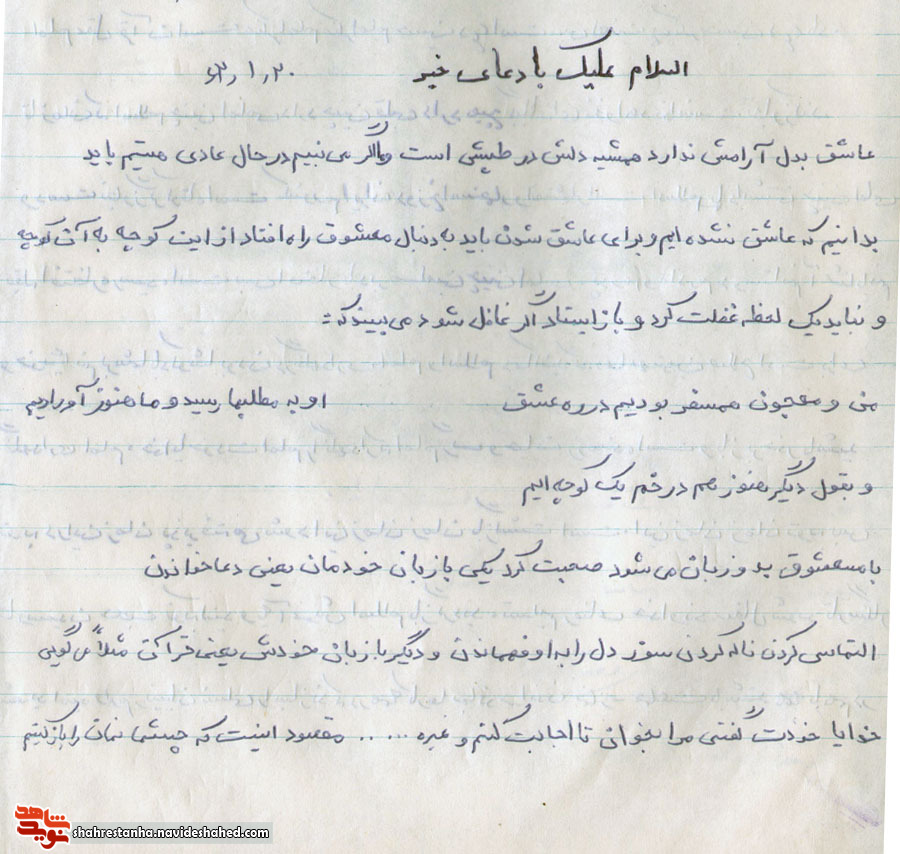 السلام علیک با دعای خیر ۶۳٫۱٫۲۰
عاشق بدل آرامش ندارد همشیه دلش در طپشی است و اگر می نبیم در حال عادی هستیم باید
بدانیم که عاشق نشده ایم و برای عاشق شدن باید به دنبال معشوق راه افتاد از این کوچه به آن کوچه
و نباید یک لحظه غفلت کرد و باز ایستاد اگر غافل شود می بیند که :
من و معجون همسفر بودیم در ره عشق او به مطلبها رسید و ما هنوز آوراه ایم
و بقول دیگر هنوز هم در خم یک کوچه ایم
با معشوق بد و زبان می شود صحبت کرد یکی با زبان خودمان یعنی دعا خواندن
التماسی کردن ناله کردن سوز دل را به او فهماندن و دیگر با زبان خودش یعنی قرآکن مثلاً می گویی
خدایا خودت گفتی مرا بخوانی تا اجابت کنم و غیره ..... مقصود اینیت که چشما نمان را باز کنیم
شاهد
نوید
shahrestanha.navideshahed.com